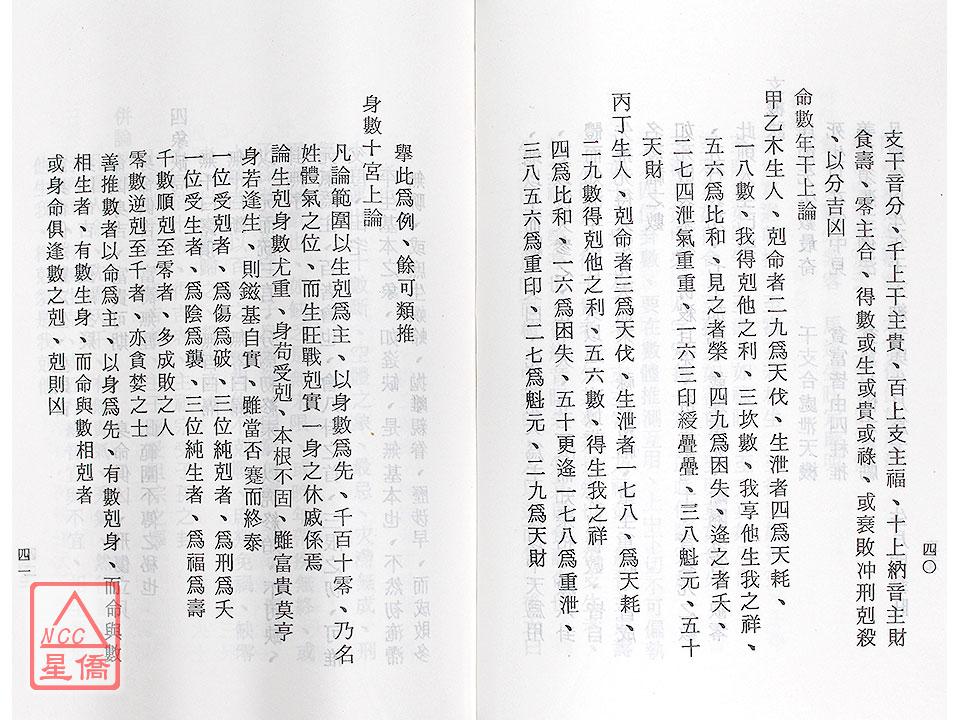 四〇
支干音分、千上干主貴、百上支主福、十上納音主財
食壽、零主合、得數或生或貴或祿、或衰敗冲刑剋殺
、以分吉凶
命數年干上論
甲乙木生人、剋命者二九爲天伐、生泄者四爲天耗、
一八數、我得剋他之利、三坎數、我享他生我之祥、
五六爲比和、見之者榮、四九爲困失、逢之者夭、
二七四泄氣重重、一六三印綬疊疊、三八魁元、五十
天財
丙丁生人、剋命者三爲天伐、生泄者一七八、爲天耗
二九數得剋他之利、五六數、得生我之祥
四爲比和、一六爲困失、五十更逢一七八爲重泄、
三八五六爲重印、二七爲魁元、二九爲天財
舉此爲例、餘可類推
身數十宮上論
凡論範圍以生剋爲主、以身數爲先、千百十零、乃名
姓體氣之位、而生旺戰剋實一身之休戚係焉
論生剋身數尤重、身苟受剋、本根不固、雖富貴莫享
身若逢生、則鎡基自實、雖當否蹇而終泰
一位受剋者、爲傷爲破、三位純剋者、爲刑爲夭
一位受生者、爲陰爲襲、三位純生者、爲福爲壽
千數順剋至零者、多成敗之人
零數逆剋至千者、亦貪婪之士
善推數者以命爲主、以身爲先、有數剋身、而命與數
相生者、有數生身、而命與數相剋者
或身命俱逢數之剋、剋則凶
四一
NCC
星僑